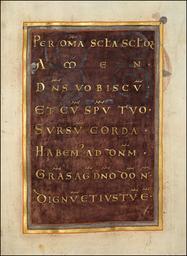 PER OMA SCLA SCLOR
AMEN
DNS VOBISCU
ET CU SPU TUO
SURSU CORDA
HABEM AD DNM
GRASAGDNODON
DIGNU ET IUSTU E